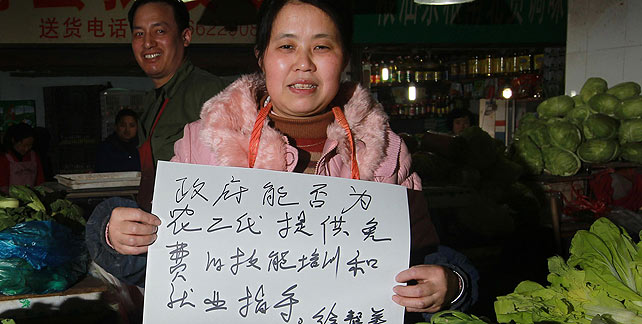 送货电话
政府能否为
农二代提供免
费的技能培训和
就业指导。徐